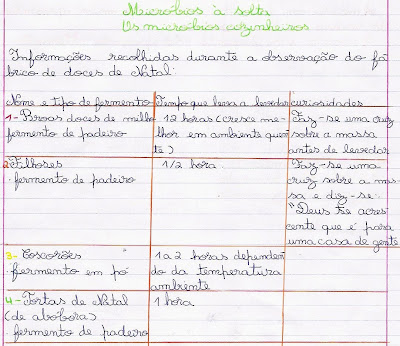 Micróbios à solta
Os micróbios cozinheiros
Informações recolhidas durante a observação do fa
brico de doces de Natal.
Nome e tipo de fermento
Tempo que leva a levedar
curiosidades
1- Broas doces de milho
fermento de padeiro
12 horas (cresce me-
lhor em ambiente quen
te)
Faz-se uma cruz
sobre a massa
antes de levedar
2- Filhoses
. fermento de padeiro
1/2 hora
Faz-se uma
cruz sobre a ma-
sa e diz-se.
"Deus te acres
cente que é para
uma casa de gente
3- Coscorões
. fermento em pó
1 a 2 horas dependen
do da temperatura
ambiente
4- Tortas de Natal
(de abóbora)
. fermento de padeiro
1 hora